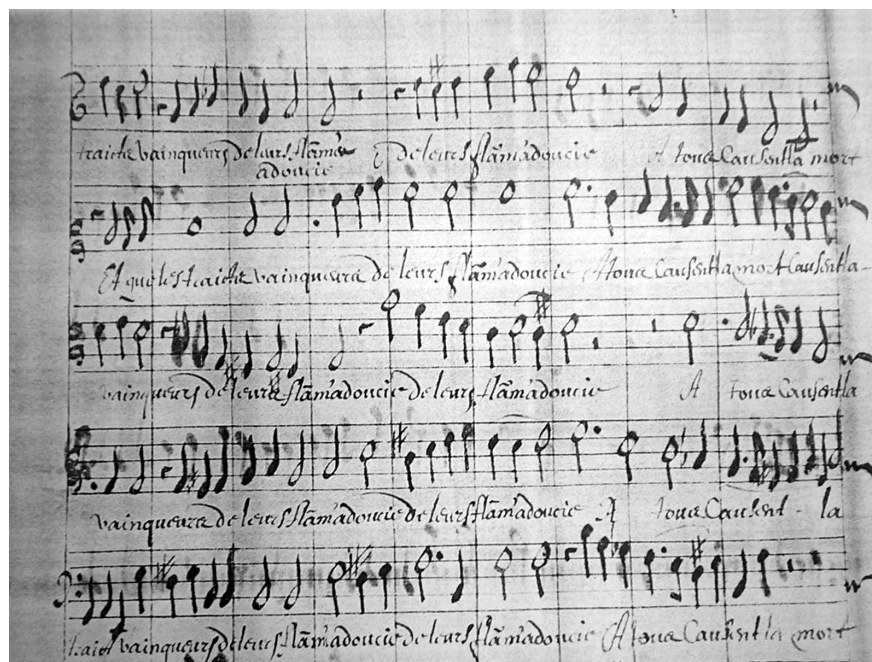 traicts vainqueurs de leurs flam'e de leurs flam'adoucie A tous Causent la mort
adoucie
Et que les traicts vainqueurs de leurs flam'adoucie A tous Causent la mort Causent la-
vainqueurs de leurs flam'adoucie de leurs flam'adoucie A tous Causent la
vainqueurs de leurs flam'adoucie de leurs flam'adoucie A tous Causent - la
traicts vainqueurs de leurs flam'adoucie de leurs flam'adoucie A tous Causent la mort